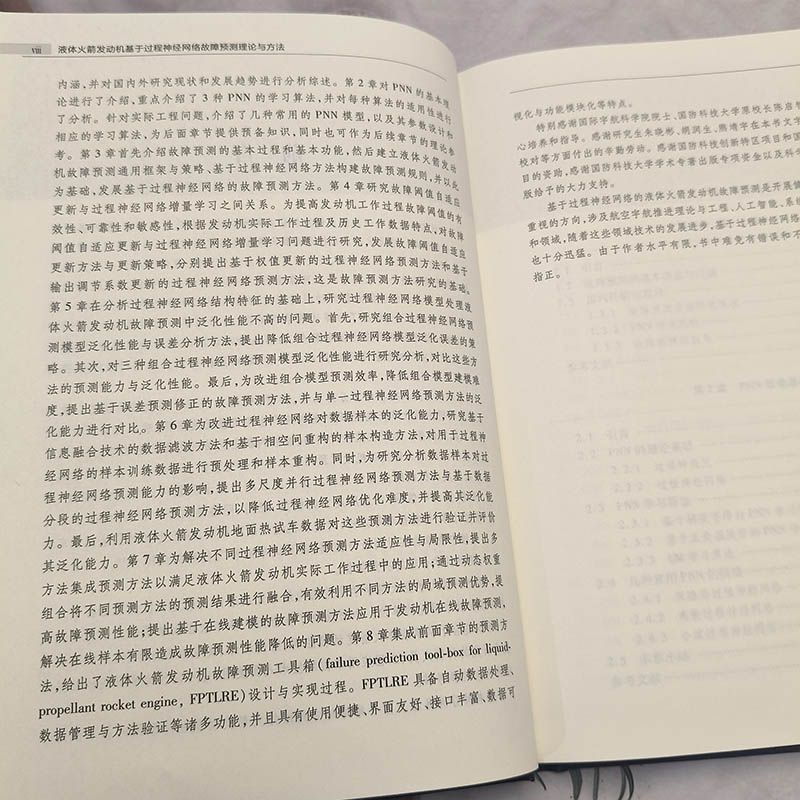 VIII 液体火箭发动机基于过程神经网络故障预测理论与方法
内涵,并对国内外研究现状和发展趋势进行分析综述。第2章对PNN的基本理
论进行了介绍,重点介绍了3种PNN的学习算法,并对每种算法的适用性进行
了分析。针对实际工程问题,介绍了几种常用的PNN模型,以及其参数设计和
相应的学习算法,为后面章节提供预备知识,同时也可作为后续章节的理论参
考。第3章首先介绍故障预测的基本过程和基本功能,然后建立液体火箭发动
机故障预测通用框架与策略、基于过程神经网络方法构建故障预测规则,并以此
为基础,发展基于过程神经网络的故障预测方法。第4章研究故障阈值自适应
更新与过程神经网络增量学习之间关系。为提高发动机工作过程故障阈值的有
效性、可靠性和敏感性,根据发动机实际工作过程及历史工作数据特点,对故障
阈值自适应更新与过程神经网络增量学习问题进行研究,发展故障阈值自适应
更新方法与更新策略,分别提出基于权值更新的过程神经网络预测方法和基于
输出调节系数更新的过程神经网络预测方法,这是故障预测方法研究的基础。
第5章在分析过程神经网络结构特征的基础上,研究过程神经网络模型处理液
体火箭发动机故障预测中泛化性能不高的问题。首先,研究组合过程神经网络预
测模型泛化性能与误差分析方法,提出降低组合过程神经网络模型泛化误差的策
略。其次,对三种组合过程神经网络预测模型泛化性能进行研究分析,对比这些方
法的预测能力与泛化性能。最后,为改进组合模型预测效率,降低组合模型建模难
度,提出基于误差预测修正的故障预测方法,并与单一过程神经网络预测方法的泛
化能力进行对比。第6章为改进过程神经网络对数据样本的泛化能力,研究基于
信息融合技术的数据滤波方法和基于相空间重构的样本构造方法,对用于过程神
经网络的样本训练数据进行预处理和样本重构。同时,为研究分析数据样本对过
程神经网络预测能力的影响,提出多尺度并行过程神经网络预测方法与基于数据
分段的过程神经网络预测方法,以降低过程神经网络优化难度,并提高其泛化能
力。最后,利用液体火箭发动机地面热试车数据对这些预测方法进行验证并评价
其泛化能力。第7章为解决不同过程神经网络预测方法适应性与局限性,提出多
方法集成预测方法以满足液体火箭发动机实际工作过程中的应用;通过动态权重
组合将不同预测方法的预测结果进行融合,有效利用不同方法的局域预测优势,提
高故障预测性能;提出基于在线建模的故障预测方法应用于发动机在线故障预测,
解决在线样本有限造成故障预测性能降低的问题。第8章集成前面章节的预测方
法,给出了液体火箭发动机故障预测工具箱(failure prediction tool-box for liquid-
propellant rocket engine, FPTLRE)设计与实现过程。FPTLRE具备自动数据处理、
数据管理与方法验证等诸多功能,并且具有使用便捷、界面友好、接口丰富、数据可
视化与功能模块化等特点。
特别感谢国际宇航科学院院士、国防科技大学原校长陈启智
心培养和指导。感谢研究生朱晓彬、胡润生、熊靖宇在本书文字
校对等方面付出的辛勤劳动。感谢国防科技创新特区项目和国
目的资助,感谢国防科技大学学术专著出版专项资金以及科学
版给予的大力支持。
基于过程神经网络的液体火箭发动机故障预测是开展健
重视的方向,涉及航空宇航推进理论与工程、人工智能、系统
和领域,随着这些领域技术的发展进步,基于过程神经网络
也十分迅猛。由于作者水平有限,书中难免有错误和不
指正。